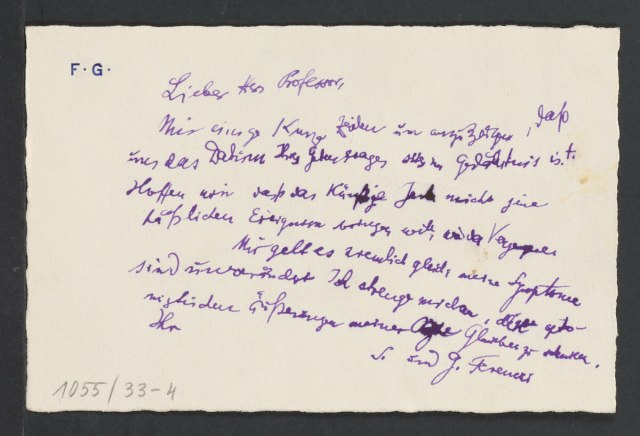 F·G·
Lieber Herr Professor,
Nur einige kurze Zeilen um anzuzeigen, daß
uns das Datum Ihres Geburtstages im Gedächtnis ist.
Hoffen wir daß das künftige Jahr nicht jene
häßlichen Ereignisse bringen wird, wie das
Mir geht es ziemlich gleich, meine Symptome
sind unverändert. Ich strenge mich an, den opti-
mistischen Äußerungen meiner Glauben zu schenken.
Ihr
S. und G. Ferenczi
1055/33-4